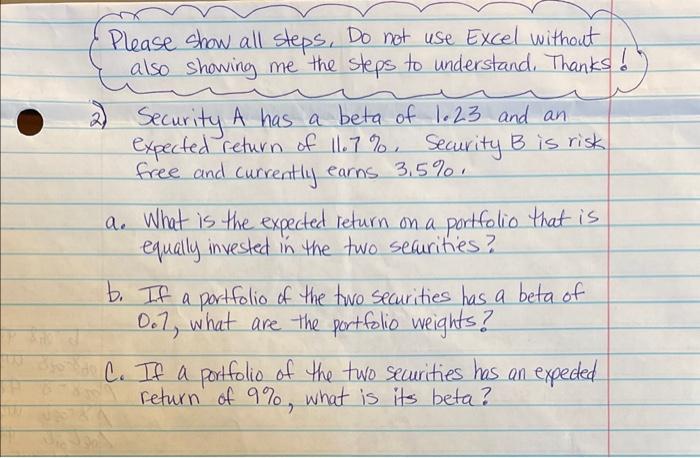 Please show all steps. Do not use Excel without
also showing me the steps to understand. Thanks!
2) Security A has a beta of 1.23 and an
expected return of 11.7%. Security B is risk
free and currently earns 3.5%.
a. What is the expected return on a portfolio that is
equally invested in the two securities?
b. If a portfolio of the two securities has a beta of
0.7, what are the portfolio weights?
C. If a portfolio of the two securities has an expected
return of 9%, what is its beta?